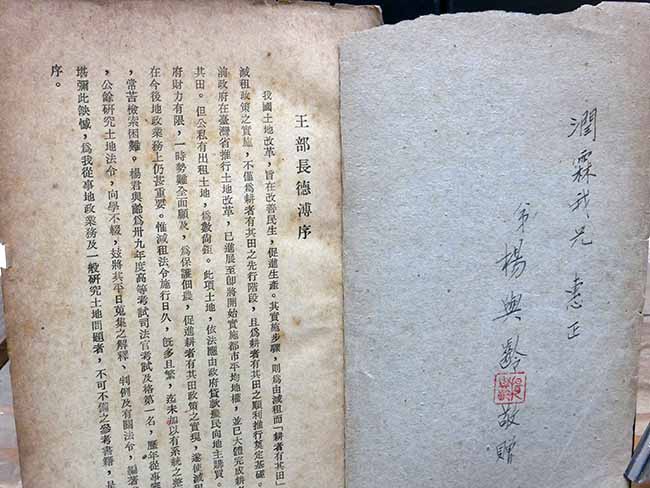 潤霖我兄 惠正
弟楊與齡敬贈
王部長德溥序
我國土地改革,旨在改善民生,促進生產。其實施步驟,則爲由減租而「耕者有其田」
減租政策之實施,不僅爲耕者有其田之先行階段,且爲耕者有其田之順利推行奠定基礎。
前政府在臺灣省推行土地改革,已進展至卽將開始實施都市平均地權,並已大體完成耕
其田。但公私有出租土地,爲數尙鉅。此項土地,依法應由政府貸款農民向地主購買。
府財力有限,一時勢難全面顧及,爲保護佃農,促進耕者有其田政策之實現,遂使減租
在今後地政業務上仍甚重要。惟減租法令施行日久,旣多且繁,迄未加以有系統之整
,常苦檢索困難。楊君與齡爲卅九年度高等考試司法官考試及格第一名,歷年從事
,公餘研究土地法令,向學不輟,玆將其平日蒐集之解釋、判例及有關法令,編著
堪彌此缺憾,爲我從事地政業務及一般研究土地問題者,不可不備之參考書籍,是
序。